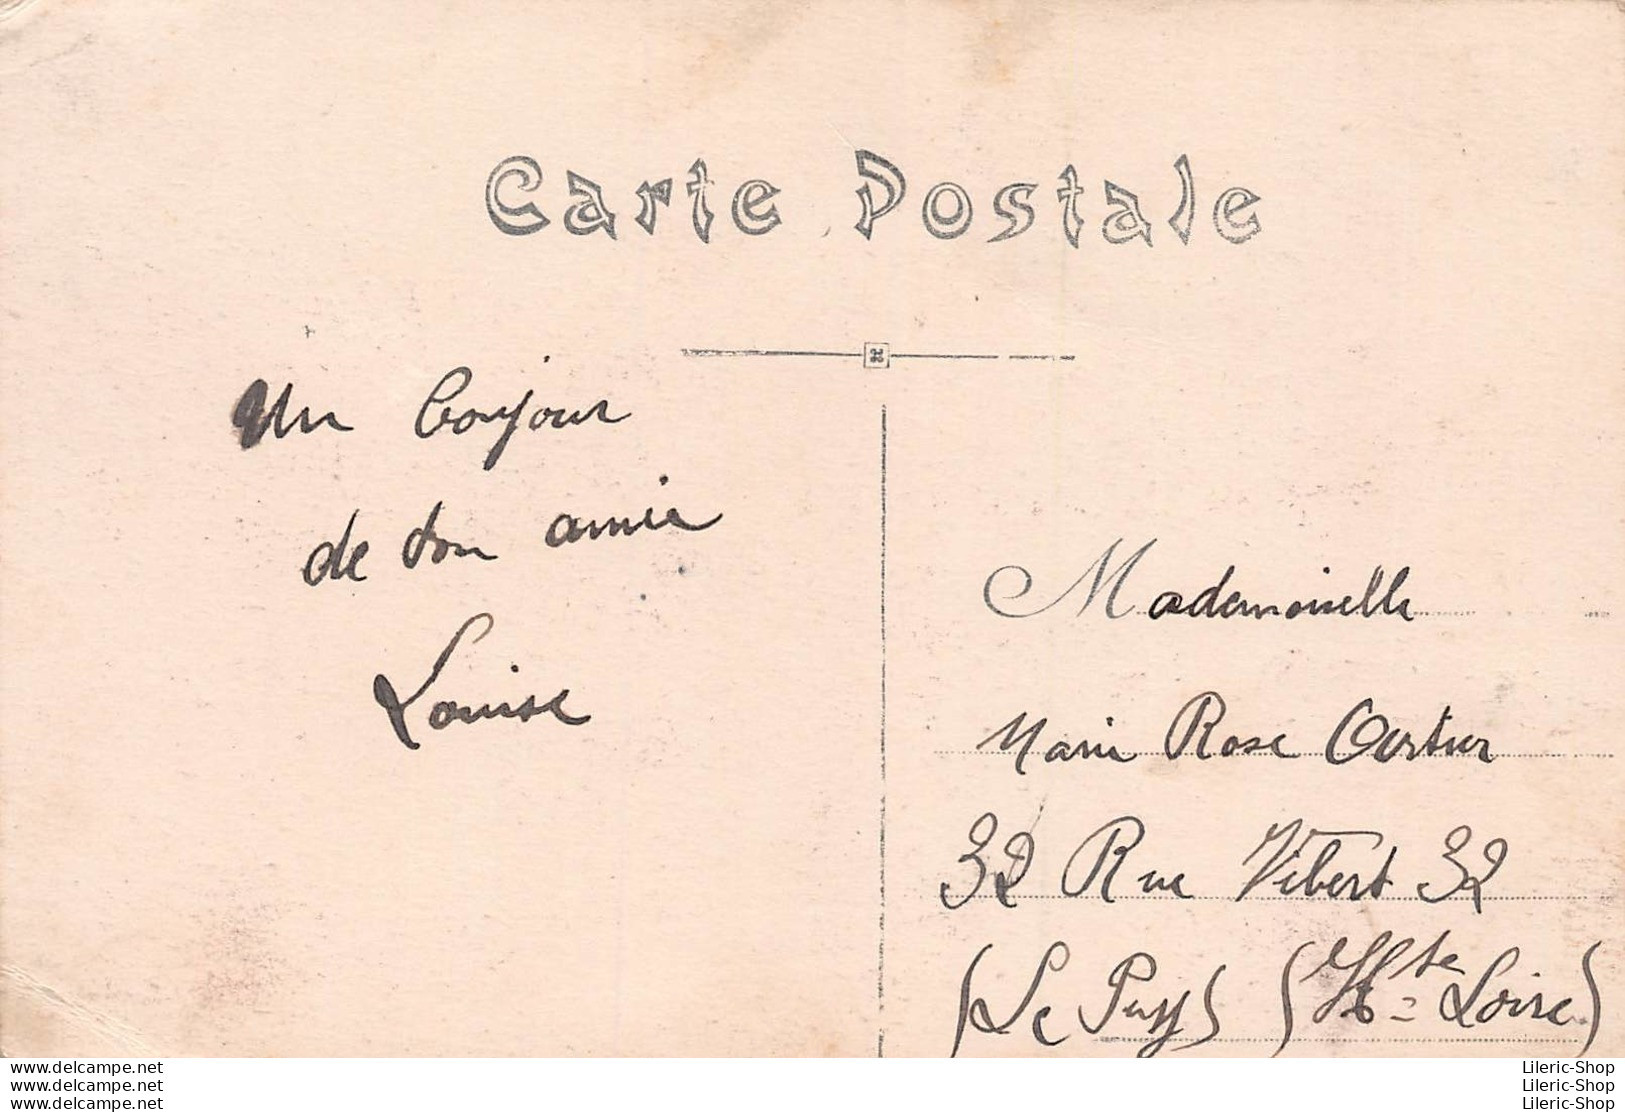 Carte Postale
Un bonjour
de ton amie
Louise
Mademoiselle
Marie Rose
32 Rue Vibert 32
(Le Puy) (Hte-Loire)
www.delcampe.net
www.delcampe.net
www.delcampe.net
Lileric-Shop
Lileric-Shop
Lileric-Shop